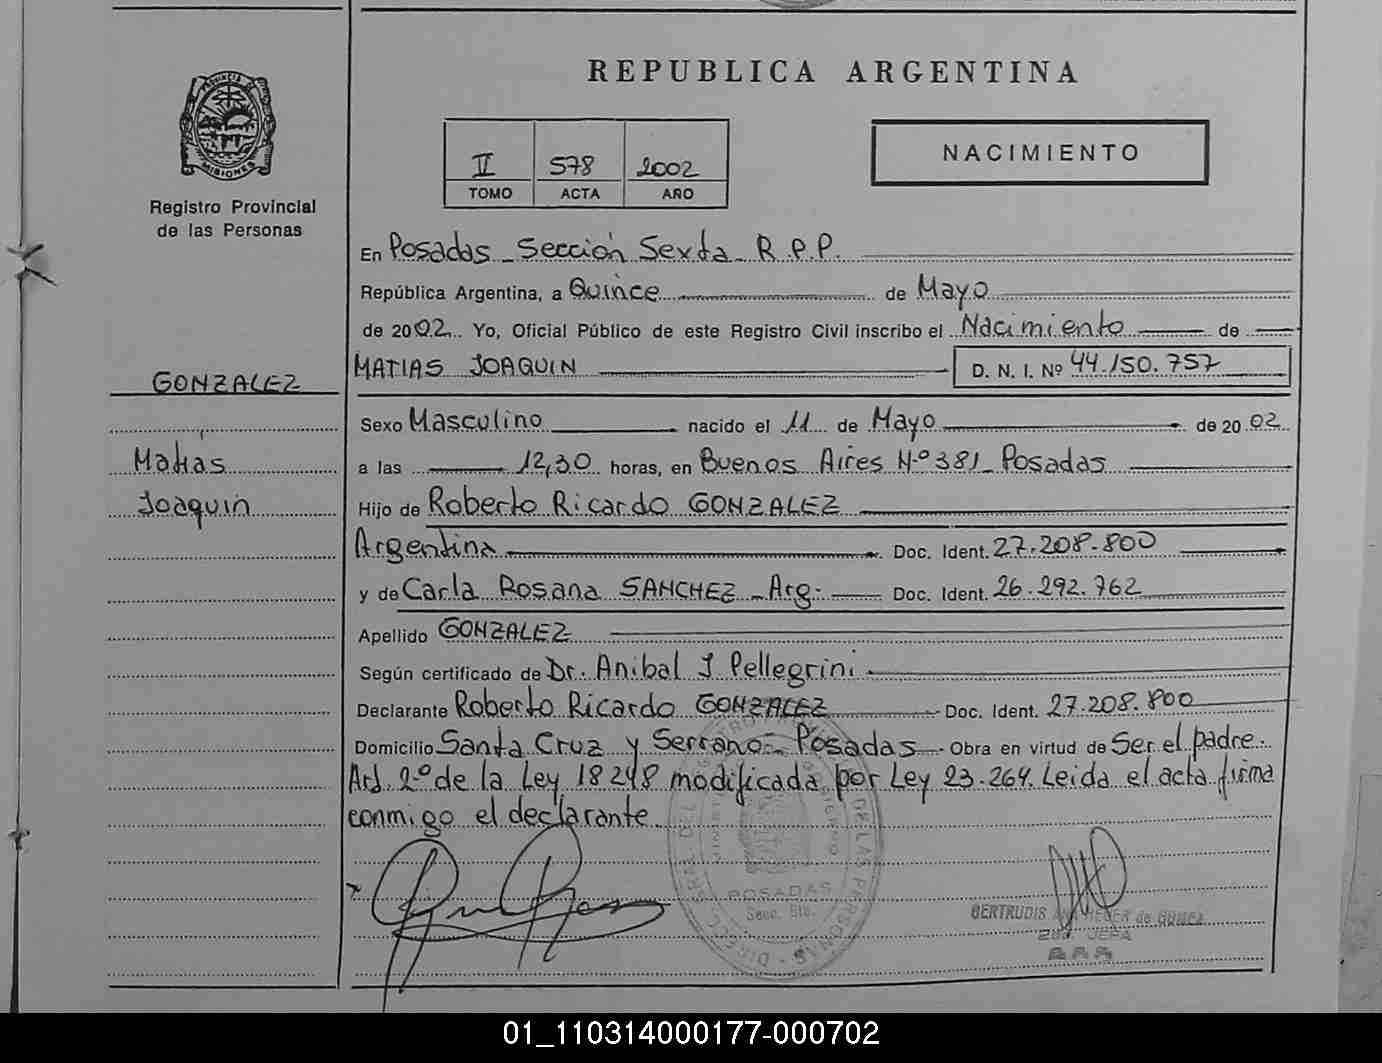 REPUBLICA ARGENTINA
PROVINCIA DE MISIONES
Registro Provincial
de las Personas
II 578 2002
TOMO ACTA AÑO
NACIMIENTO
En Posadas - Sección Sexta - R.P.P.
República Argentina, a Quince de Mayo
de 2002 Yo, Oficial Público de este Registro Civil inscribo el Nacimiento de
MATIAS JOAQUIN D. N. I. Nº 44.150.757
GONZALEZ
Matias
Joaquin
Sexo Masculino nacido el 11 de Mayo de 2002
a las 12,30 horas, en Buenos Aires Nº 381 - Posadas
Hijo de Roberto Ricardo GONZALEZ
Argentina Doc. Ident. 27.208.800
y de Carla Rosana SANCHEZ - Arg. Doc. Ident. 26.292.762
Apellido GONZALEZ
Según certificado de Dr. Anibal J Pellegrini
Declarante Roberto Ricardo GONZALEZ Doc. Ident. 27.208.800
Domicilio Santa Cruz y Serrano - Posadas Obra en virtud de Ser el padre.
Art. 2º de la Ley 18.248 modificada por Ley 23.264. Leida el acta firma
conmigo el declarante
POSADAS
Secc. 6ta.
GERTRUDIS de
JEFA
01_110314000177-000702